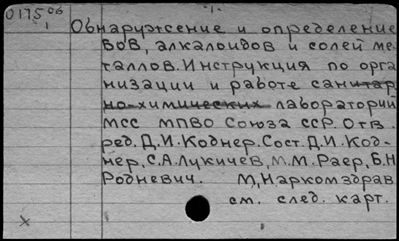 017506
1 Обнаружение и определение
ВОВ, алкалоидов и солей ме-
таллов. Инструкция по орга
низации и работе санитар
но-химических лаборатории
МСС МПВО Союза ССР. Отв.
ред. Д.И. Коднер. Сост. Д.И. Код-
нер, С.А. Лукичев, М.М. Раер, Б.Н
Родневич. М, Наркомздрав
см. след. карт.